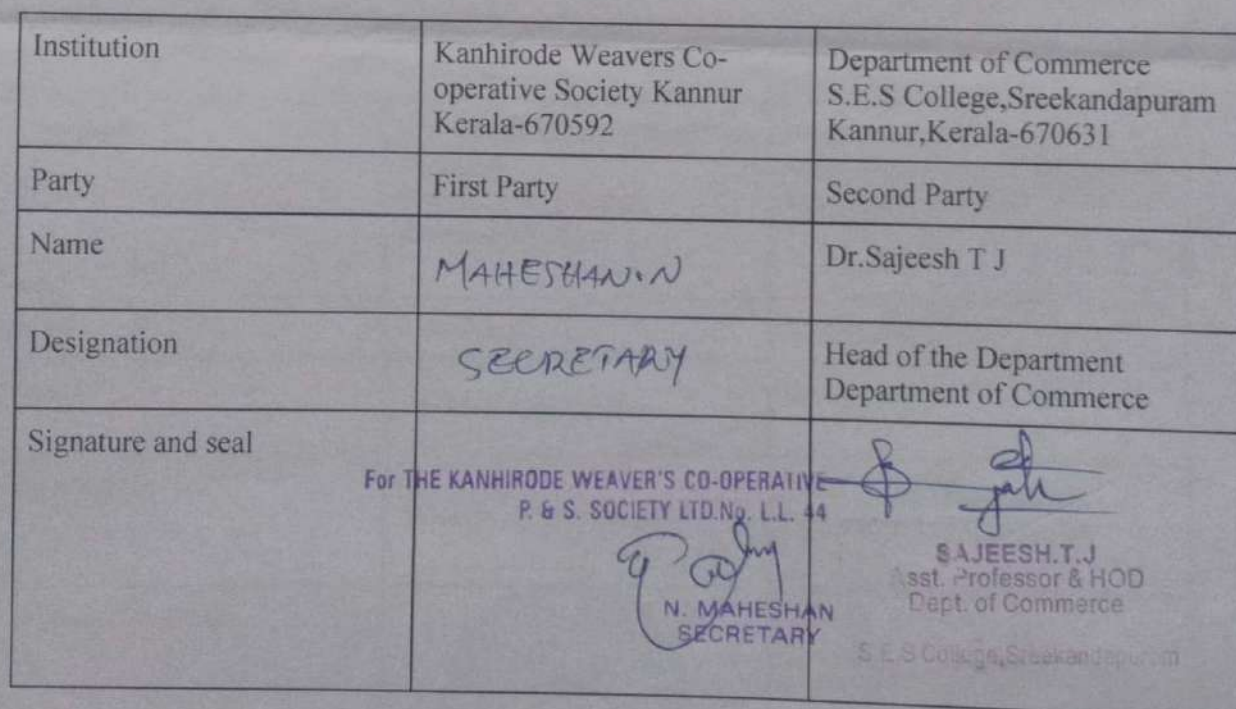 Institution
Kanhirode Weavers Co-
operative Society Kannur
Kerala-670592
Department of Commerce
S.E.S College,Sreekandapuram
Kannur,Kerala-670631
Party
First Party
Second Party
Name
MAHESHAN.N
Dr.Sajeesh T J
Designation
SECRETARY
Head of the Department
Department of Commerce
Signature and seal
For THE KANHIRODE WEAVER'S CO-OPERATIVE
P. & S. SOCIETY LTD.No. L.L. 44
N. MAHESHAN
SECRETARY
SAJEESH.T.J
Asst. Professor & HOD
Dept. of Commerce
S.E.S College,Sreekandapuram